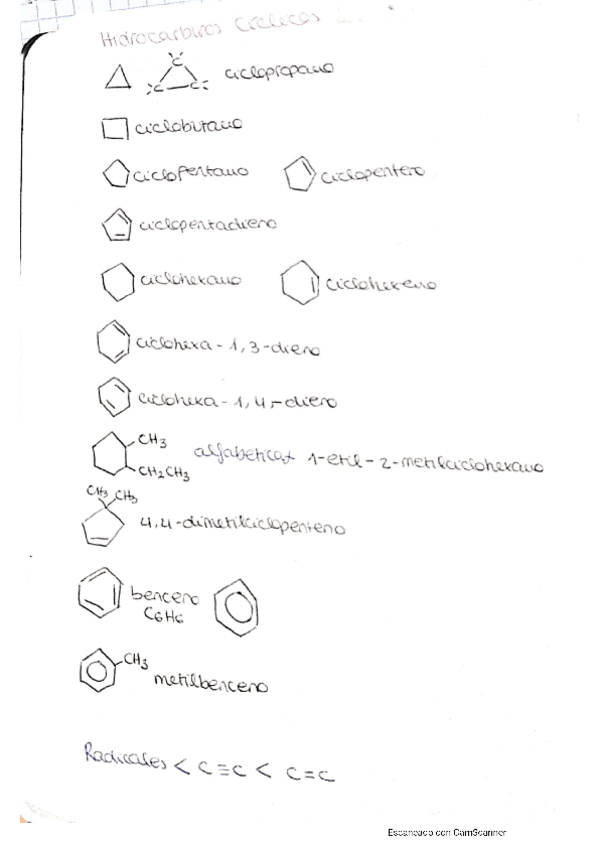 Hidrocarburos Cíclicos
C C C ciclopropano
ciclobutano
ciclopentano ciclopenteno
ciclopentadieno
ciclohexano ciclohexeno
ciclohexa-1,3-dieno
ciclohexa-1,4-dieno
CH3
CH2CH3 alfabética 1-etil-2-metilciclohexano
CH3 CH3
4,4-dimetilciclopenteno
benceno
C6H6
CH3 metilbenceno
Radicales < C≡C < C=C
Escaneado con CamScanner